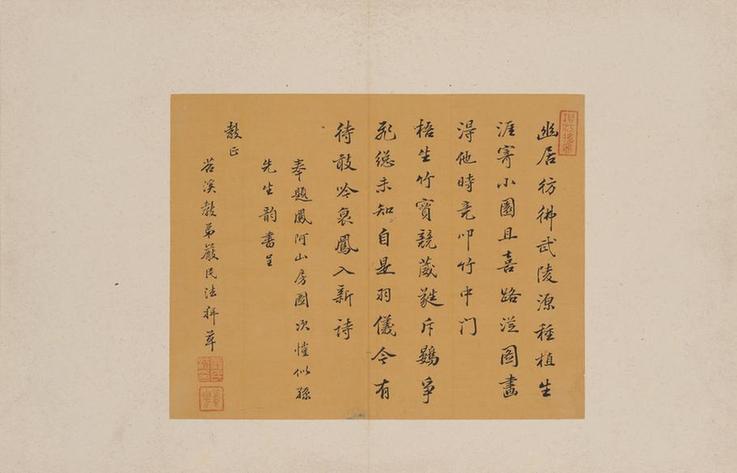 幽居彷彿武陵源種植生
涯寄小園且喜路從圖畫
得他時竟叩竹中门
梧生竹實競葳蕤斥鷃爭
飛總未知自是羽儀今有
待敢吟衰鳳入新诗
奉題鳳阿山房圖次愷似孫
先生韵書呈
教正
苕溪教弟嚴民法拜草